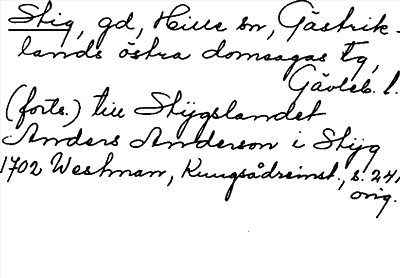 Stig, gd, Hille sn, Gästrik-
lands östra domsagas tg,
Gävleb. l.
(forts.) till Stÿgslandet
Anders Anderson i Stÿg
1702 Westman, Kungsådreinst., s. 241
orig.